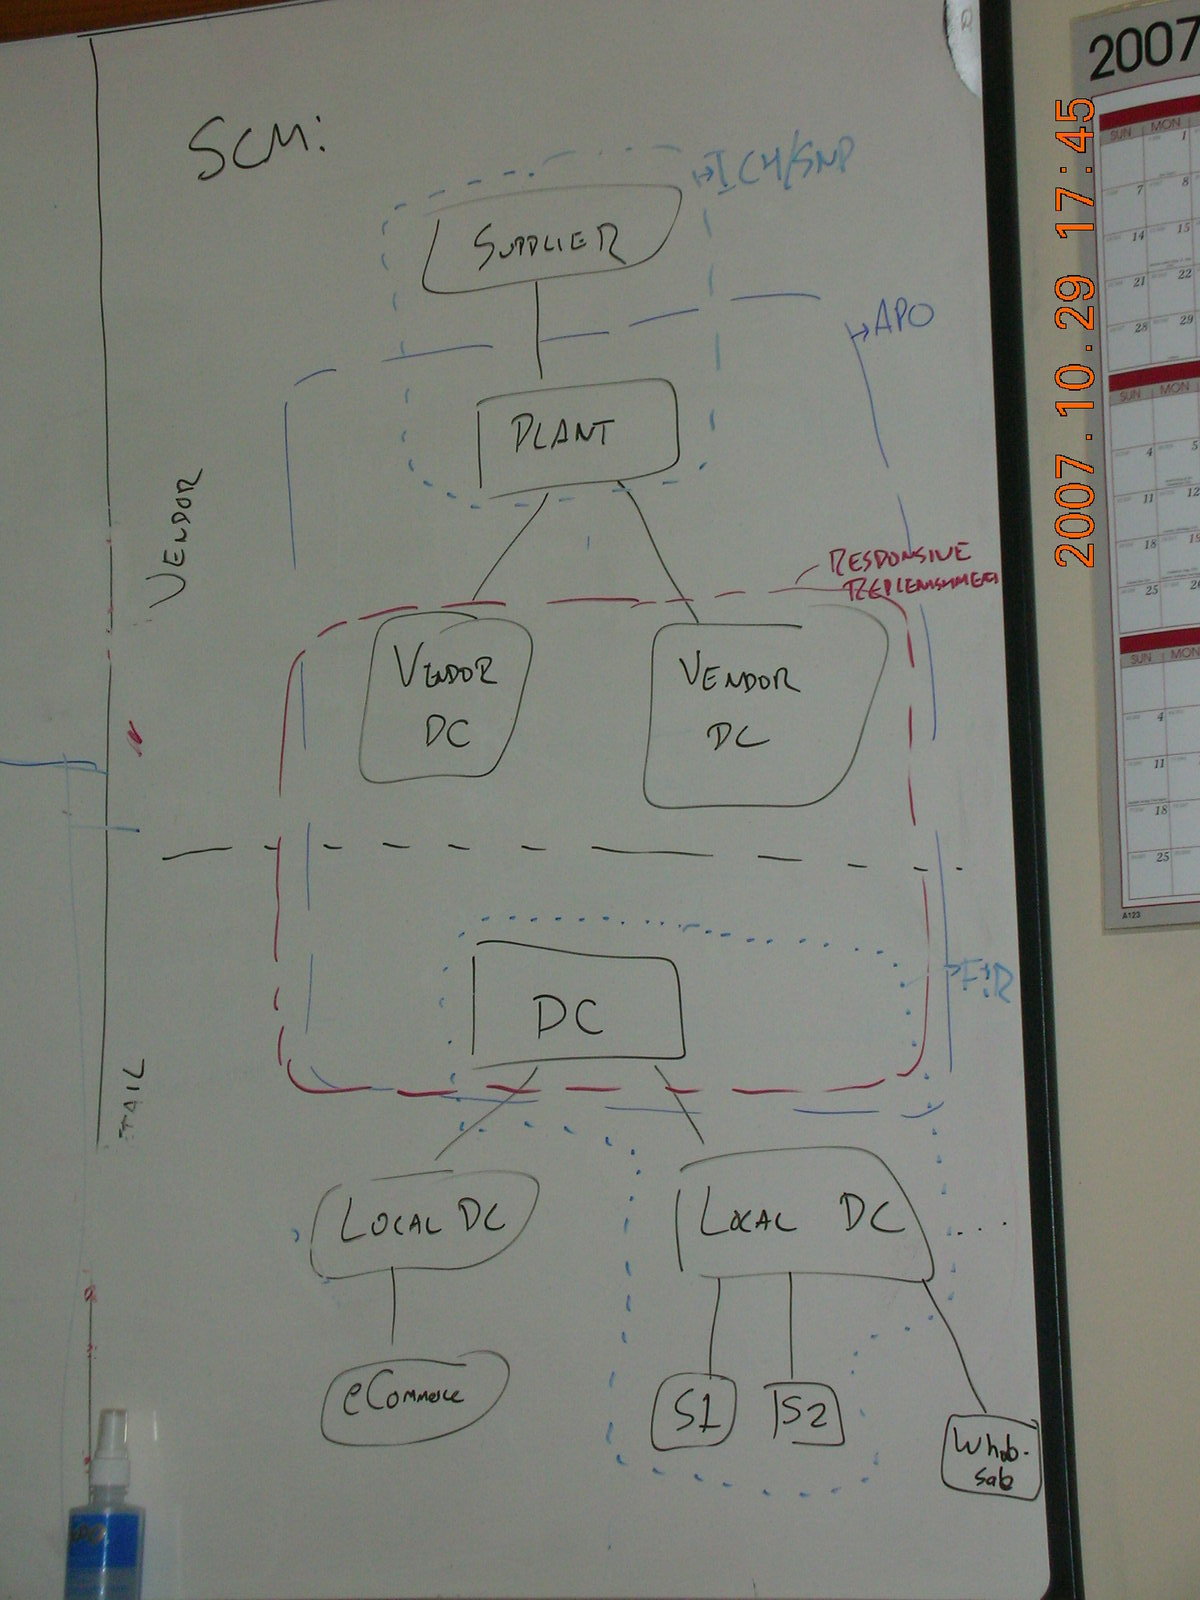 SCM:
ICH/SNP
SUPPLIER
APO
PLANT
VENDOR
RESPONSIVE
VENDOR
DC
VENDOR
DC
DC
TAIL
LOCAL DC
LOCAL DC
....
eCommerce
S1
S2
2007
SUN MON
1
7 8
14 15
21 22
28 29
SUN MON
4 5
11 12
18 19
25
SUN MON
4
11
18
25
A123
2007.10.29 17:45